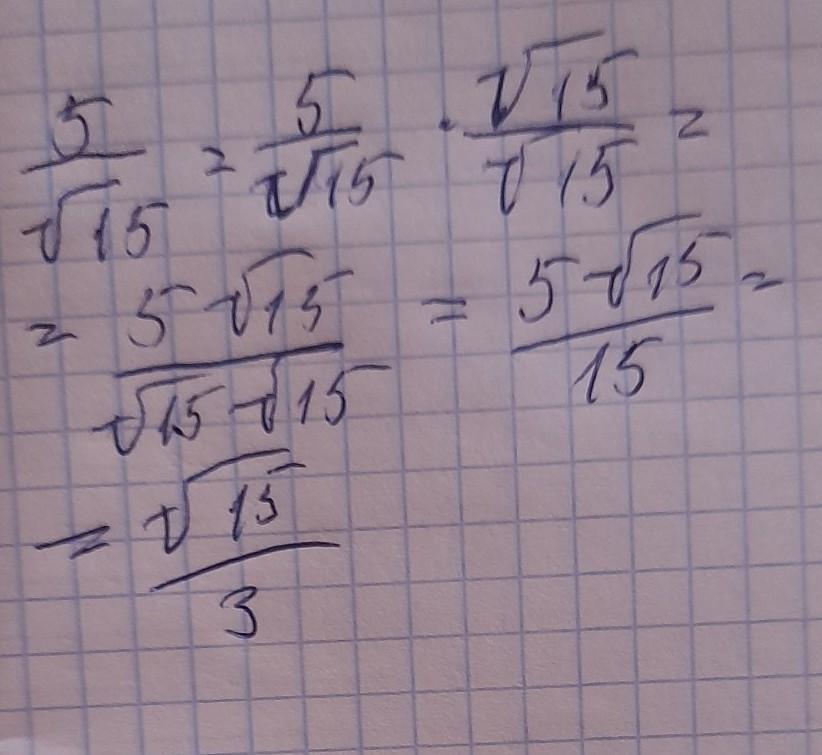 5/√15 = 5/√15 · √15/√15 =
= 5√15/√15√15 = 5√15/15 =
= √15/3